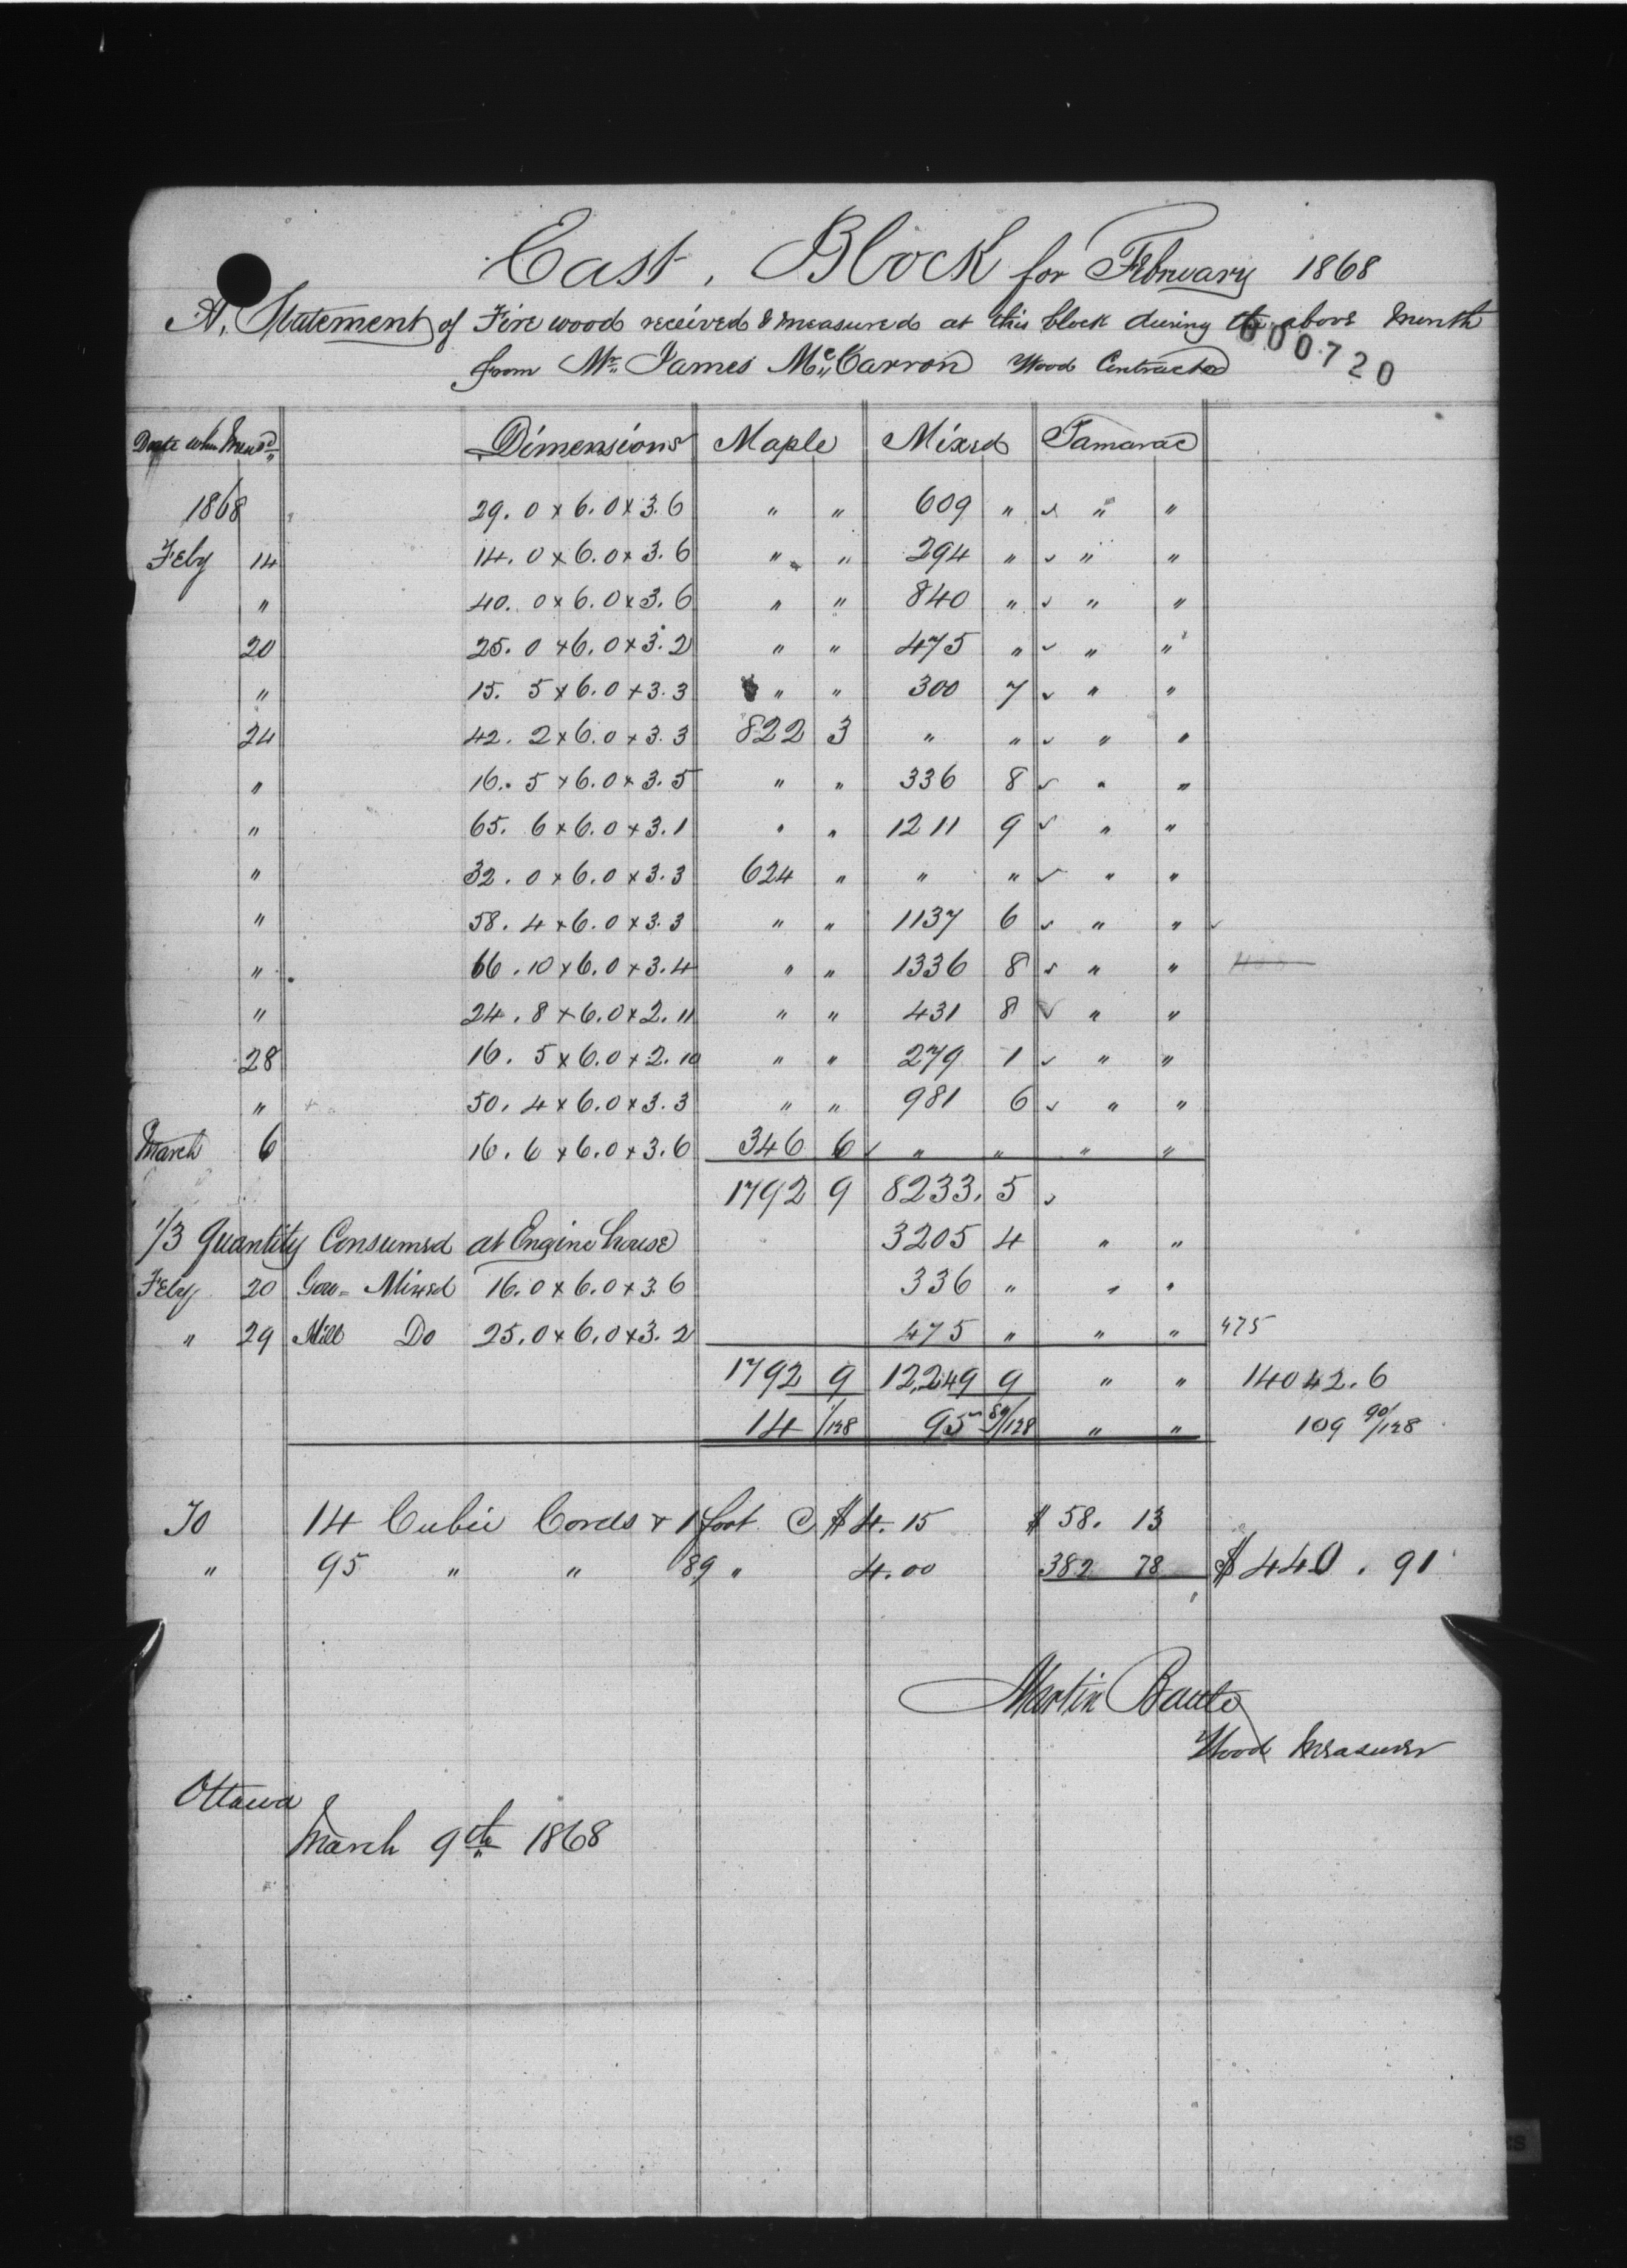 East. Block for February 1868
A, Statement of Fire wood received & measured at this block during the above month
000720
from Mr. James McCarron Wood Contractor
Date when Measd Dimensions Maple Mixed Tamarac
1868 29.0 x 6.0 x 3.6 " " 609 " ✓ " "
Feby 14 14.0 x 6.0 x 3.6 " " 294 " ✓ " "
" 40.0 x 6.0 x 3.6 " " 840 " ✓ " "
20 25.0 x 6.0 x 3.2 " " 475 " ✓ " "
" 15.5 x 6.0 x 3.3 " " 300 7 ✓ " "
24 42.2 x 6.0 x 3.3 822 3 " " ✓ " "
" 16.5 x 6.0 x 3.5 " " 336 8 ✓ " "
" 65.6 x 6.0 x 3.1 " " 1211 9 ✓ " "
" 32.0 x 6.0 x 3.3 624 " " " ✓ " "
" 58.4 x 6.0 x 3.3 " " 1137 6 ✓ " " ✓
" 66.10 x 6.0 x 3.4 " " 1336 8 ✓ " "
" 24.8 x 6.0 x 2.11 " " 431 8 ✓ " "
28 16.5 x 6.0 x 2.10 " " 279 1 ✓ " "
" 50.4 x 6.0 x 3.3 " " 981 6 ✓ " "
March 6 16.6 x 6.0 x 3.6 346 6 ✓ " " " "
1792 9 8233. 5 ✓
1/3 Quantity Consumed at Engine house 3205 4 " "
Feby 20 Mixed 16.0 x 6.0 x 3.6 336 " " "
" 29 Hill Do 25.0 x 6.0 x 3.2 475 " " " 475
1792 9 12,249 9 " " 14042.6
14 1/128 95 89/128 " " 109 90/128
To 14 Cubic Cords & 1 foot @ $4.15 $58. 13
" 95 " " 89 " 4.00 382 78 $440.91
Martin Baulte
Wood Measurer
Ottawa
March 9th 1868